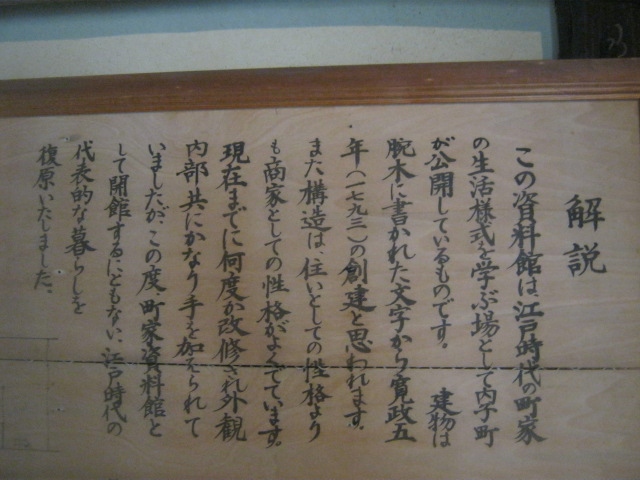 解説
この資料館は、江戸時代の町家
の生活様式を学ぶ場として内子町
が公開しているものです。 建物は
腕木に書かれた文字から寛政五
年(一七九三)の創建と思われます。
また構造は、住いとしての性格より
も商家としての性格がよくでています。
現在までに何度か改修され外観
内部共にかなり手を加えられて
いましたが、この度、町家資料館と
して開館するにともない、江戸時代の
代表的な暮らしを
復原いたしました。